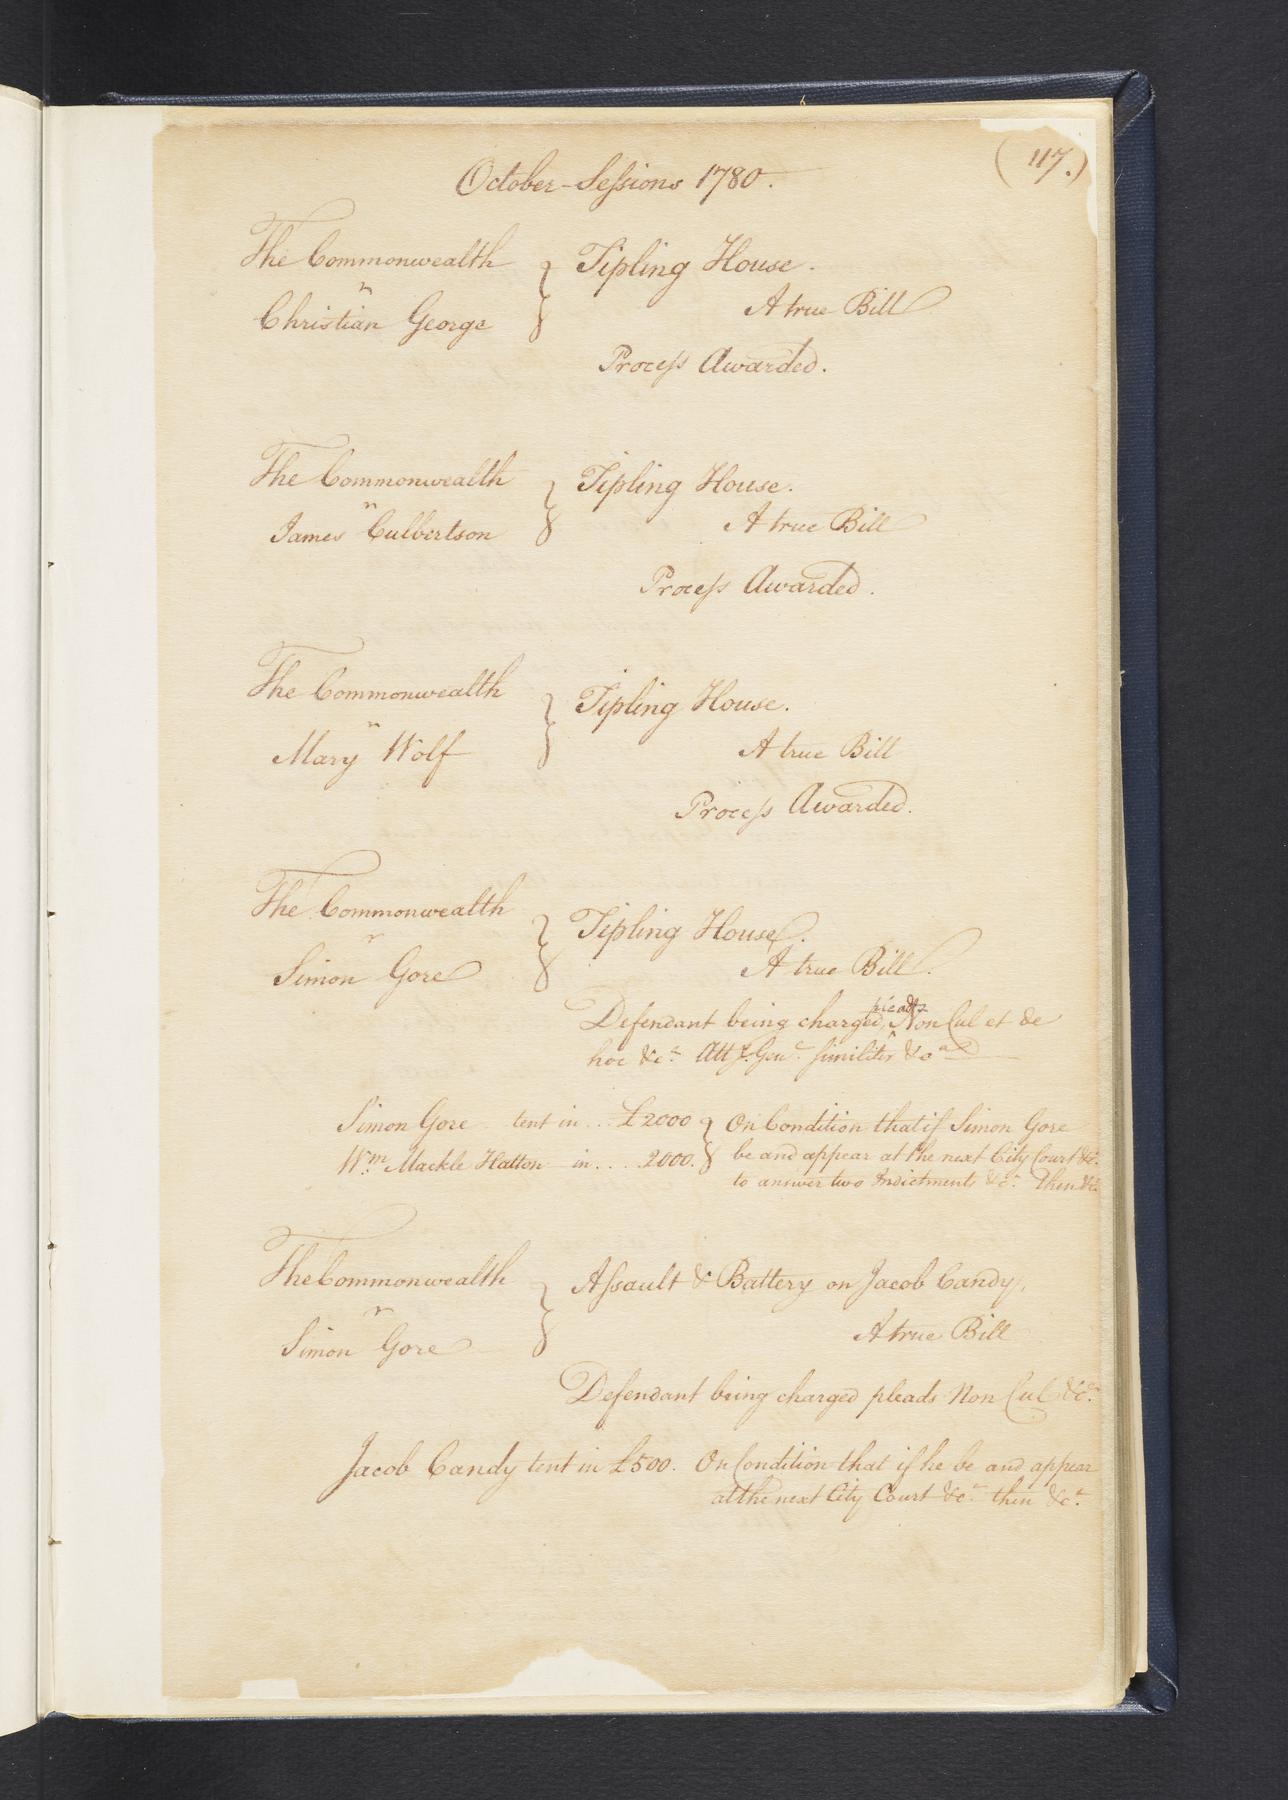 (117.)
October-Sessions 1780.
The Commonwealth
v
Christian George
Tipling House.
A true Bill
Process Awarded.
The Commonwealth
v
James Culbertson
Tipling House.
A true Bill
Process Awarded.
The Commonwealth
v
Mary Wolf
Tipling House.
A true Bill
Process Awarded.
The Commonwealth
v
Simon Gore
Tipling House.
A true Bill.
Defendant being charged, pleads Non Cul et de
hoc &c.a Att.y Gen.l similiter &c.a
Simon Gore tent in .. £2000
W.m Mackle Hatton in .... 2000.
On Condition that if Simon Gore
be and appear at the next City Court &c.
to answer two Indictments &c.a Then &c.
The Commonwealth
v
Simon Gore
Assault & Battery on Jacob Candy.
A true Bill
Defendant being charged pleads Non Cul &c.a
Jacob Candy tent in £500. On Condition that if he be and appear
at the next City Court &c.a then &c.a